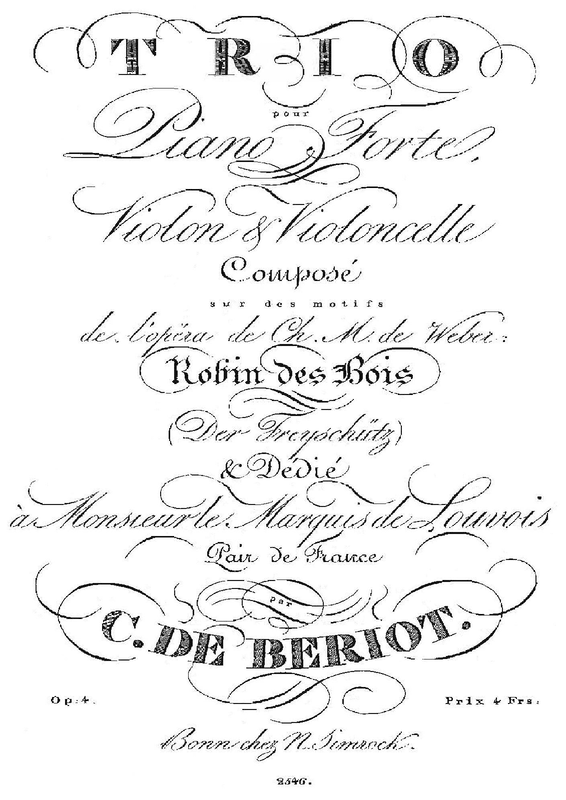 TRIO
pour
Piano Forte,
Violon & Violoncelle
Composé
sur des motifs
de l'opéra de Ch. M. de Weber:
Robin des Bois
(Der Freyschütz)
& Dédié
à Monsieur le Marquis de Louvois
Pair de France
par
C. DE BERIOT.
Op: 4.
Prix 4 Frs:
Bonn chez N. Simrock.
2546.